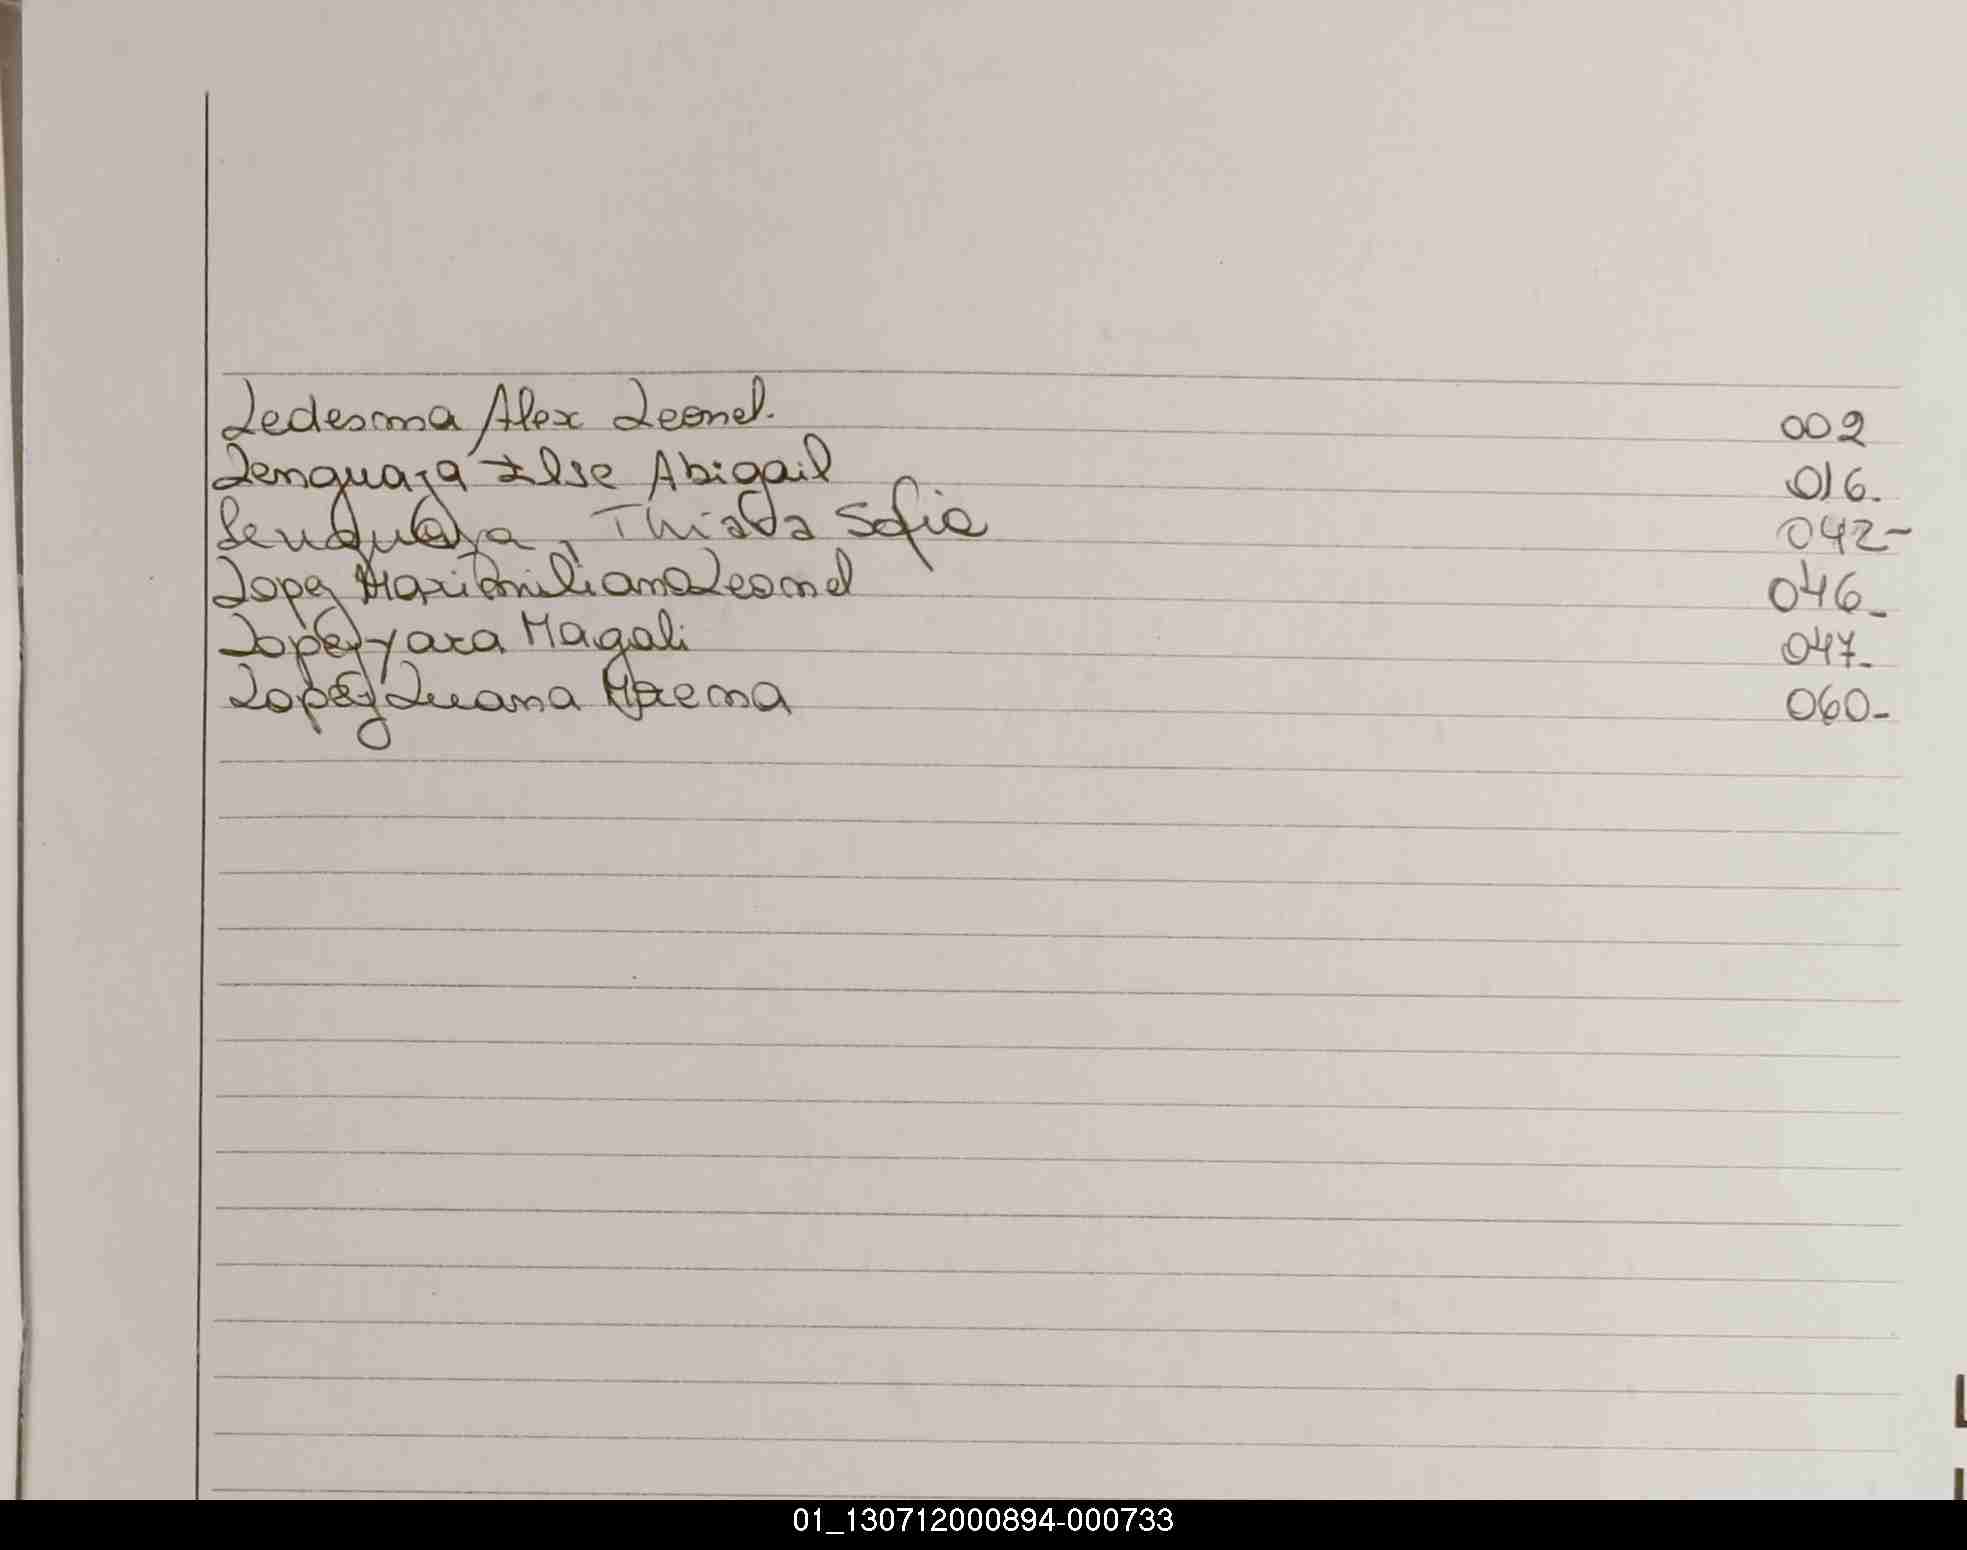 Ledesma Alex Leonel. 002
Lenguaza Ilse Abigail 016.
Lenguaza, Sofia 042-
Lopez Maximiliano Leonel 046-
Lopez Yara Magali 047-
Lopez Luana 060-
01_130712000894-000733
L